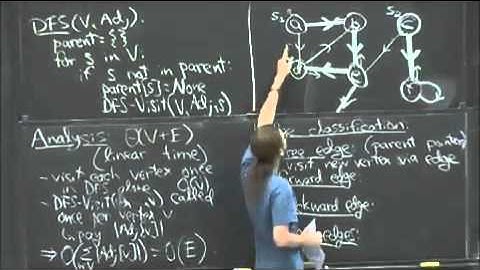 DFS(V, Adj):
parent = {}
for s in V:
if s not in parent:
parent[s] = None
DFS-Visit(V, Adj, s)
S1
a
b
S2
c
e
f
Analysis: Θ(V+E)
(linear time)
- visit each vertex once
in DFS alone O(V)
- DFS-Visit( called
once per vertex v
pay |Adj[v]|
⇒ O(Σ |Adj[v]|) = O(E)
v∈V
classification:
edge: (parent pointers)
visit new vertex via edge
edge:
edge:
edges: